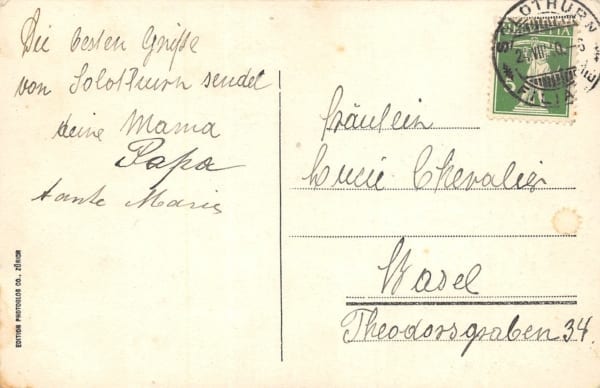 Die besten Grüsse
von Solothurn sendet
deine Mama
Papa
tante Marie
Fräulein
Lucie Chevalier
Basel
Theodorsgraben 34.
EDITION PHOTOGLOB CO., ZÜRICH
SOLOTHURN
FILIA